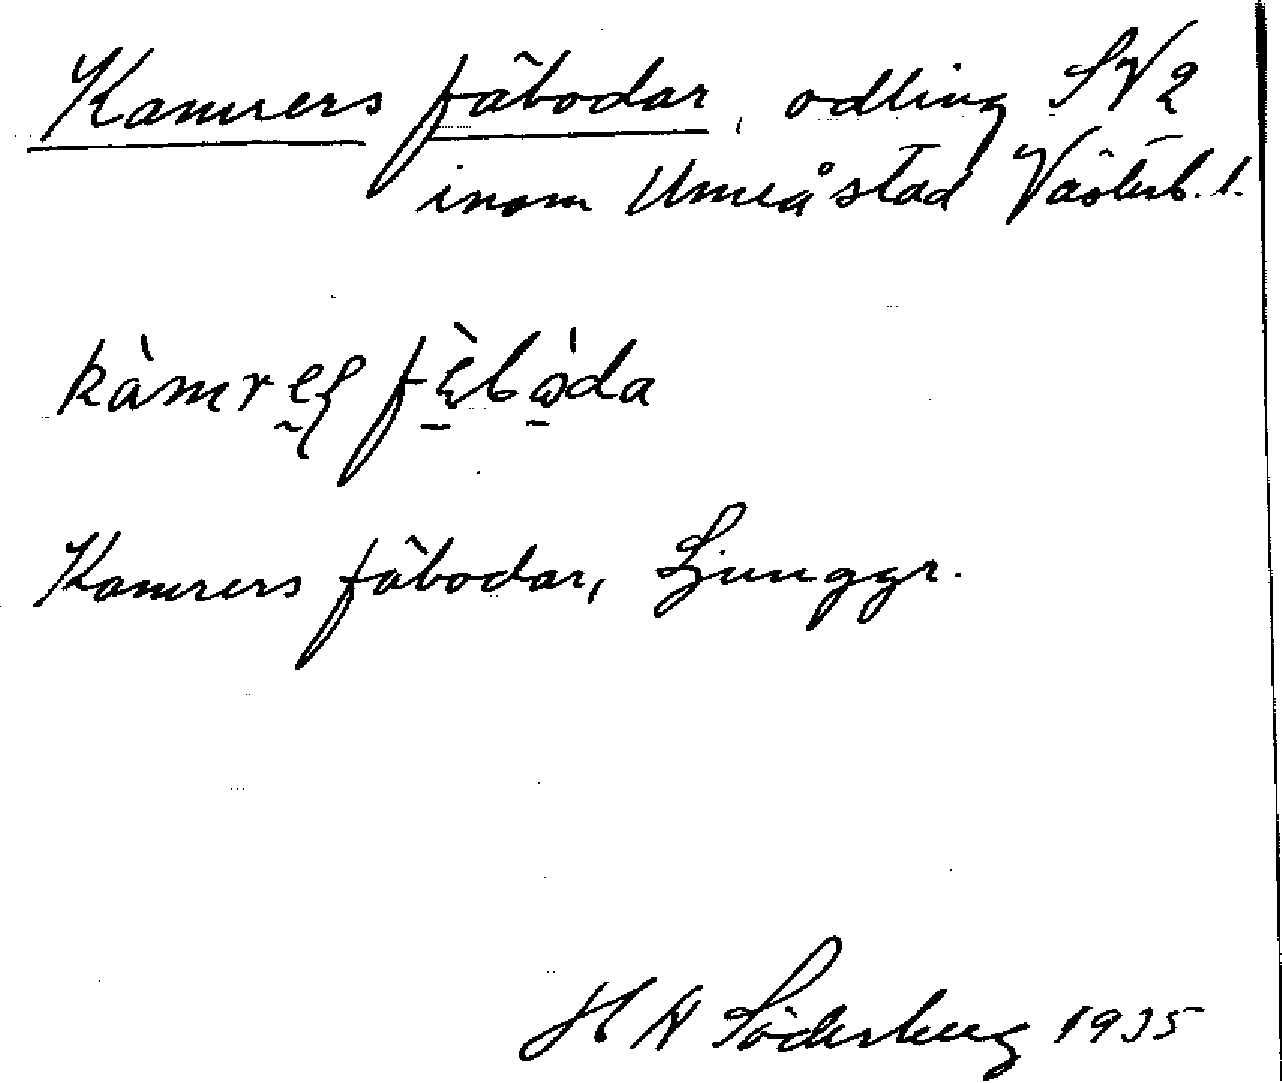 Kamrers fäbodar, odling SV2
inom Umeå stad Västerb. l.
Kamrers fäbodar, Ljunggr.
H A Söderberg 1935